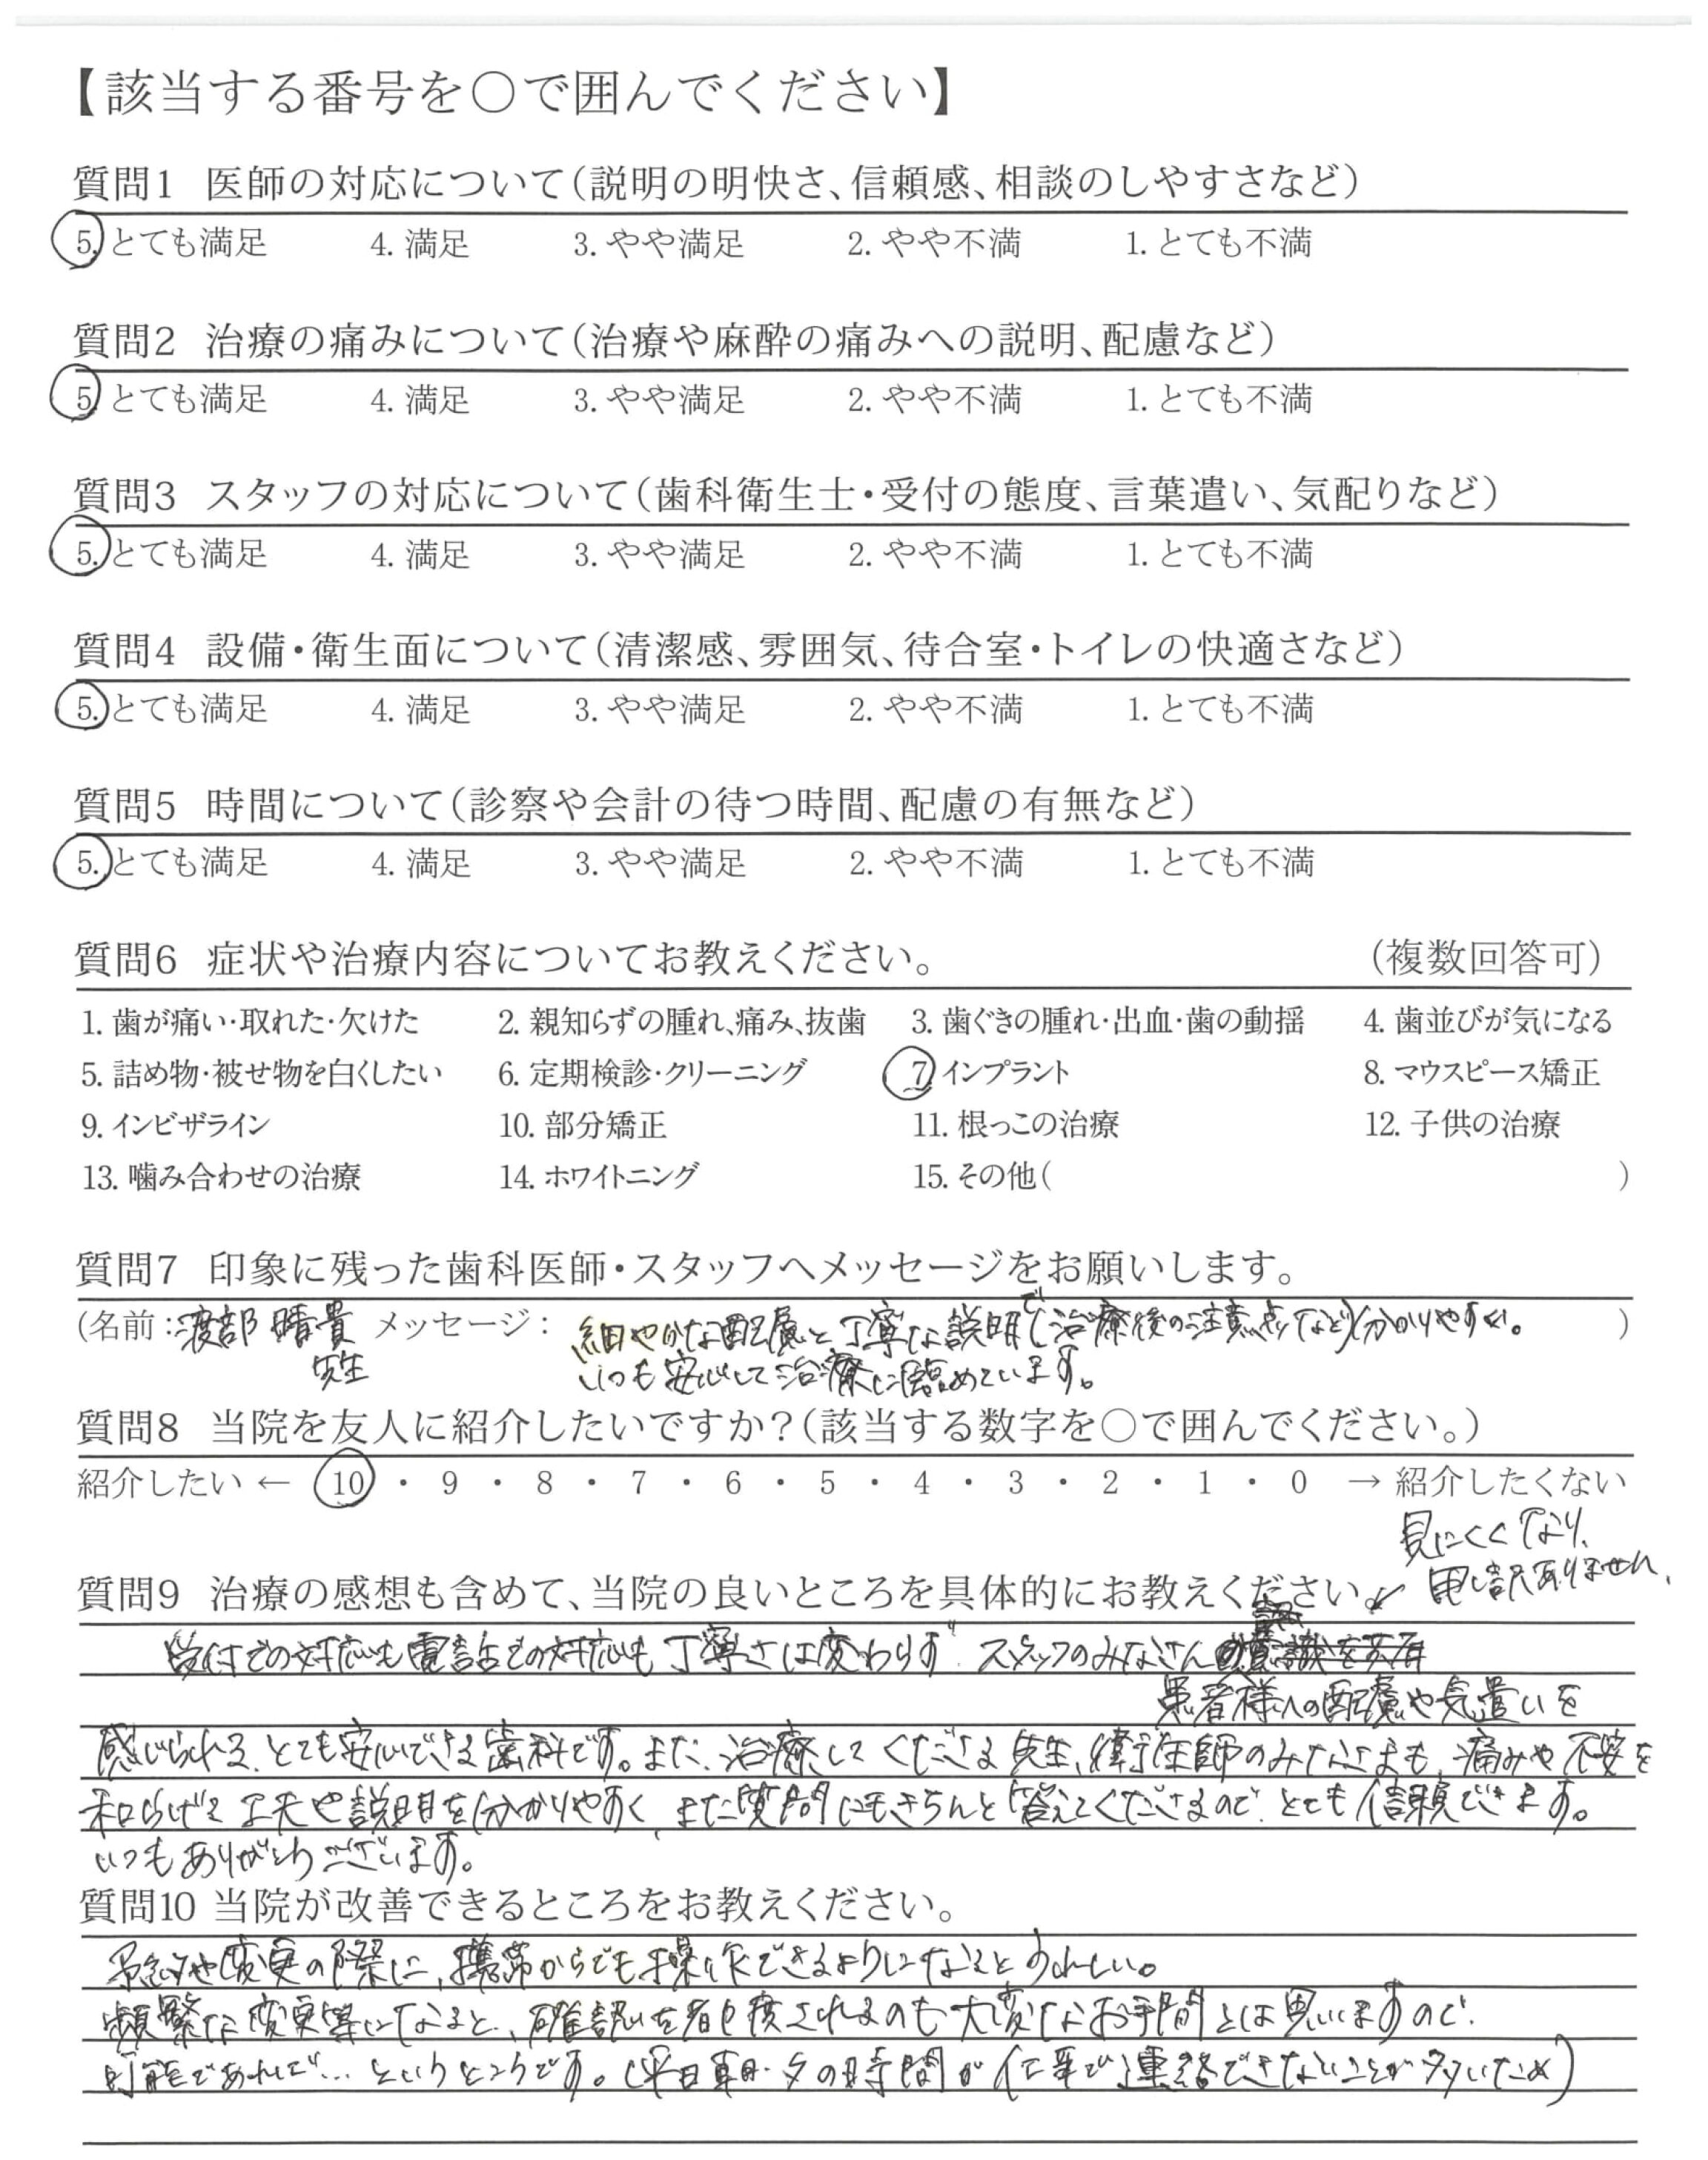 【該当する番号を○で囲んでください】
質問1 医師の対応について(説明の明快さ、信頼感、相談のしやすさなど)
5. とても満足 4. 満足 3. やや満足 2. やや不満 1. とても不満
質問2 治療の痛みについて(治療や麻酔の痛みへの説明、配慮など)
5. とても満足 4. 満足 3. やや満足 2. やや不満 1. とても不満
質問3 スタッフの対応について(歯科衛生士・受付の態度、言葉遣い、気配りなど)
5. とても満足 4. 満足 3. やや満足 2. やや不満 1. とても不満
質問4 設備・衛生面について(清潔感、雰囲気、待合室・トイレの快適さなど)
5. とても満足 4. 満足 3. やや満足 2. やや不満 1. とても不満
質問5 時間について(診察や会計の待つ時間、配慮の有無など)
5. とても満足 4. 満足 3. やや満足 2. やや不満 1. とても不満
質問6 症状や治療内容についてお教えください。 (複数回答可)
1. 歯が痛い・取れた・欠けた 2. 親知らずの腫れ、痛み、抜歯 3. 歯ぐきの腫れ・出血・歯の動揺 4. 歯並びが気になる
5. 詰め物・被せ物を白くしたい 6. 定期検診・クリーニング 7. インプラント 8. マウスピース矯正
9. インビザライン 10. 部分矯正 11. 根っこの治療 12. 子供の治療
13. 噛み合わせの治療 14. ホワイトニング 15. その他( )
質問7 印象に残った歯科医師・スタッフへメッセージをお願いします。
(名前:渡部 晴貴 先生 メッセージ: 細やかな配慮と丁寧な説明で(治療後の注意点など)分かりやすく。 )
いつも安心して治療に臨めています。
質問8 当院を友人に紹介したいですか?(該当する数字を○で囲んでください。)
紹介したい ← 10 ・ 9 ・ 8 ・ 7 ・ 6 ・ 5 ・ 4 ・ 3 ・ 2 ・ 1 ・ 0 → 紹介したくない
見にくくなり、
申し訳ありません、
質問9 治療の感想も含めて、当院の良いところを具体的にお教えください。
受付での対応も電話での対応も丁寧さは変わらず、スタッフのみなさん
患者様への配慮や気遣いを
感じられる、とても安心できる歯科です。また、治療してくださる先生、衛生師のみなさまも、痛みや不安を
和らげる工夫や説明を分かりやすく、また質問にもきちんと答えてくださるので、とても信頼できます。
いつもありがとうございます。
質問10 当院が改善できるところをお教えください。
予約や変更の際に、携帯からでも操作できるようになるとうれしい。
頻繁な変更等になると、確認を者度されるのも大変なお手間とは思いますので、
可能であれば…というところです。(平日朝・夕の時間が仕事で連絡できないことが多いため)